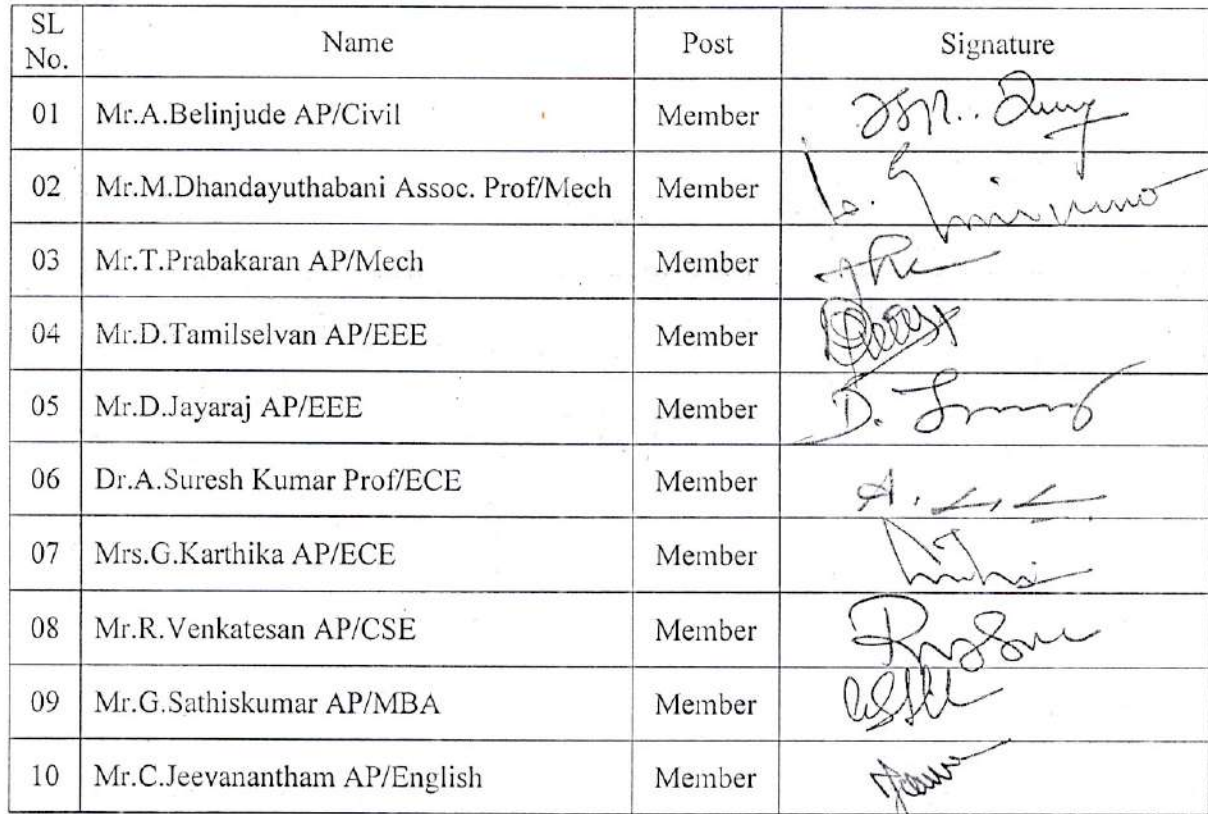 SL No. Name Post Signature
01 Mr.A.Belinjude AP/Civil Member
02 Mr.M.Dhandayuthabani Assoc. Prof/Mech Member
03 Mr.T.Prabakaran AP/Mech Member
04 Mr.D.Tamilselvan AP/EEE Member
05 Mr.D.Jayaraj AP/EEE Member D.
06 Dr.A.Suresh Kumar Prof/ECE Member A.
07 Mrs.G.Karthika AP/ECE Member
08 Mr.R.Venkatesan AP/CSE Member
09 Mr.G.Sathiskumar AP/MBA Member
10 Mr.C.Jeevanantham AP/English Member